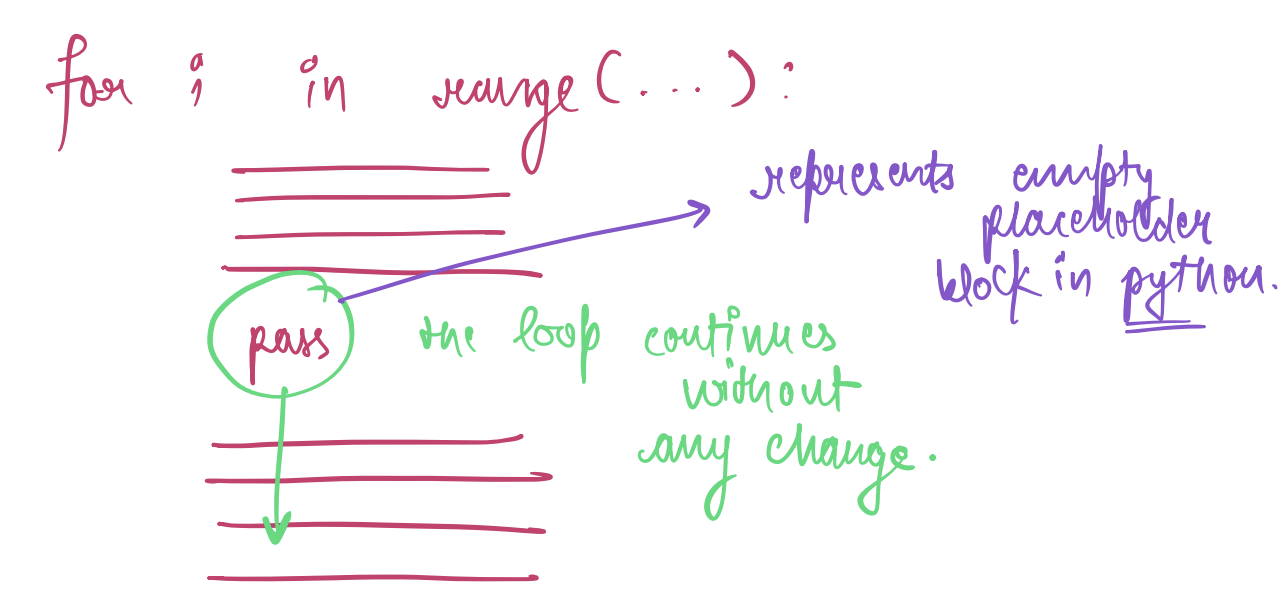 for i in range(...):
represents empty
placeholder
block in python.
pass
the loop continues
without
any change.